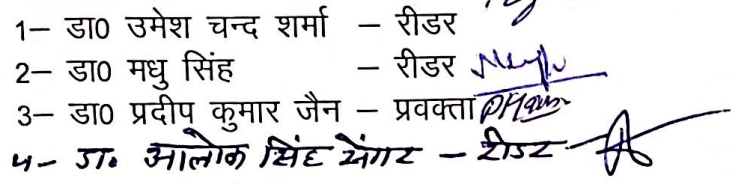 1– डा0 उमेश चन्द शर्मा – रीडर
2– डा0 मधु सिंह – रीडर
3– डा0 प्रदीप कुमार जैन – प्रवक्ता
4- डा. आलोक सिंह सेंगर - रीडर